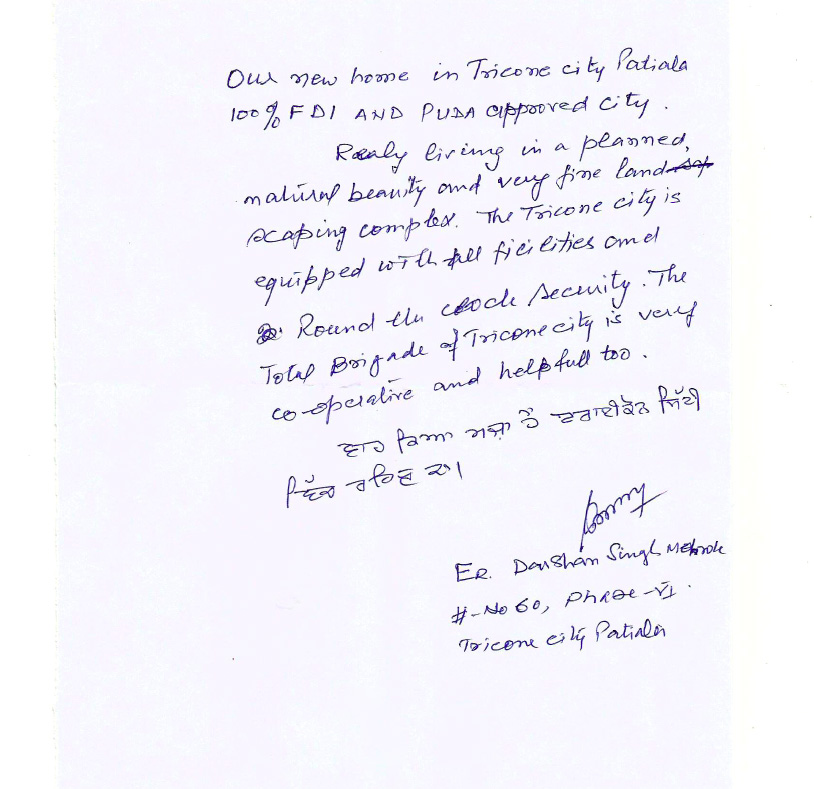 Our new home in Tricone city Patiala
100% FDI AND PUDA approved city.
Realy living in a planned,
natural beauity and very fine land
scaping complex. The Tricone city is
equipped with all ficilities and
Round the clock Security. The
Total Brigade of Tricone city is very
co-operative and helpfull too.
ਵਾਹ ਕਿਆ ਮਜ਼ਾ ਹੈ ਟਰਾਈਕੋਨ ਸਿੱਟੀ
ਵਿੱਚ ਰਹਿਣ ਦਾ।
ER. Darshan Singh
#-No 60, Phase-VI.
Tricone city Patiala